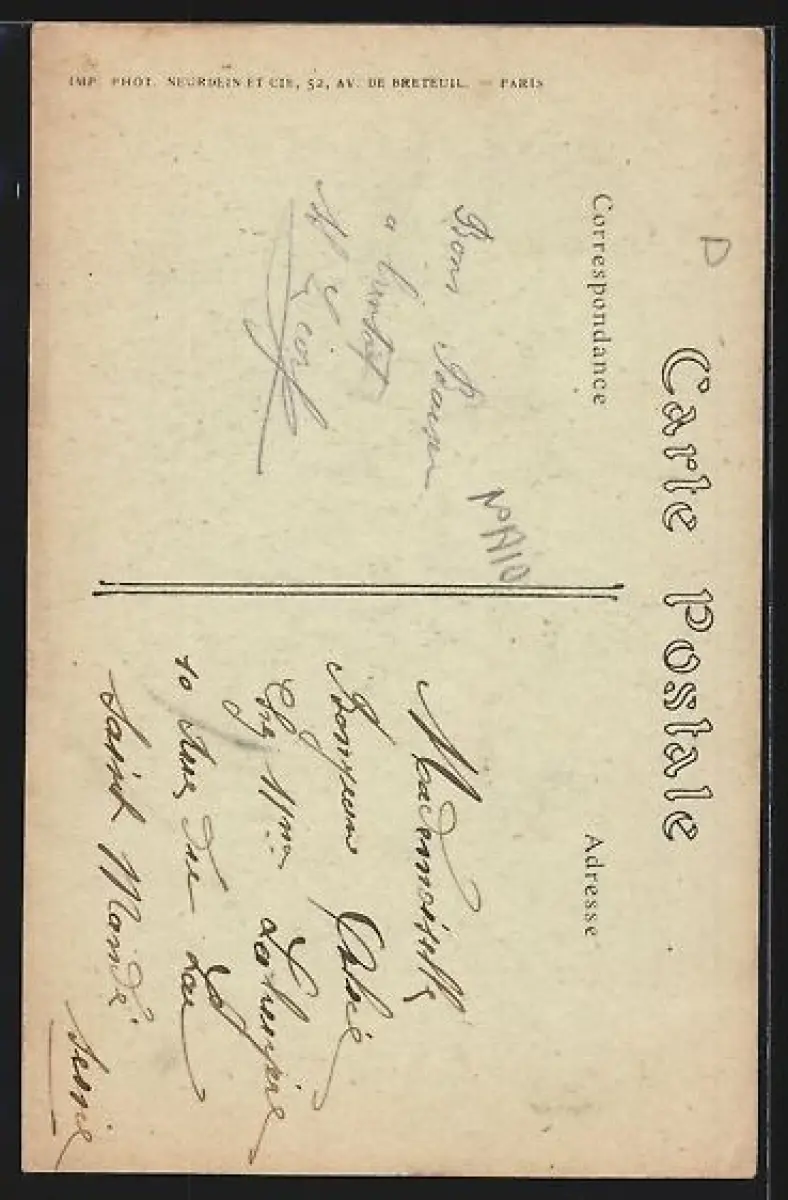 D
Carte Postale
Correspondance
Adresse
Bons Baisers
a bientôt
Mademoiselle
Chez Mme
10 Rue du Lac
Saint Mandé
Seine
IMP. PHOT. NEURDEIN ET CIE, 52, AV. DE BRETEUIL. — PARIS